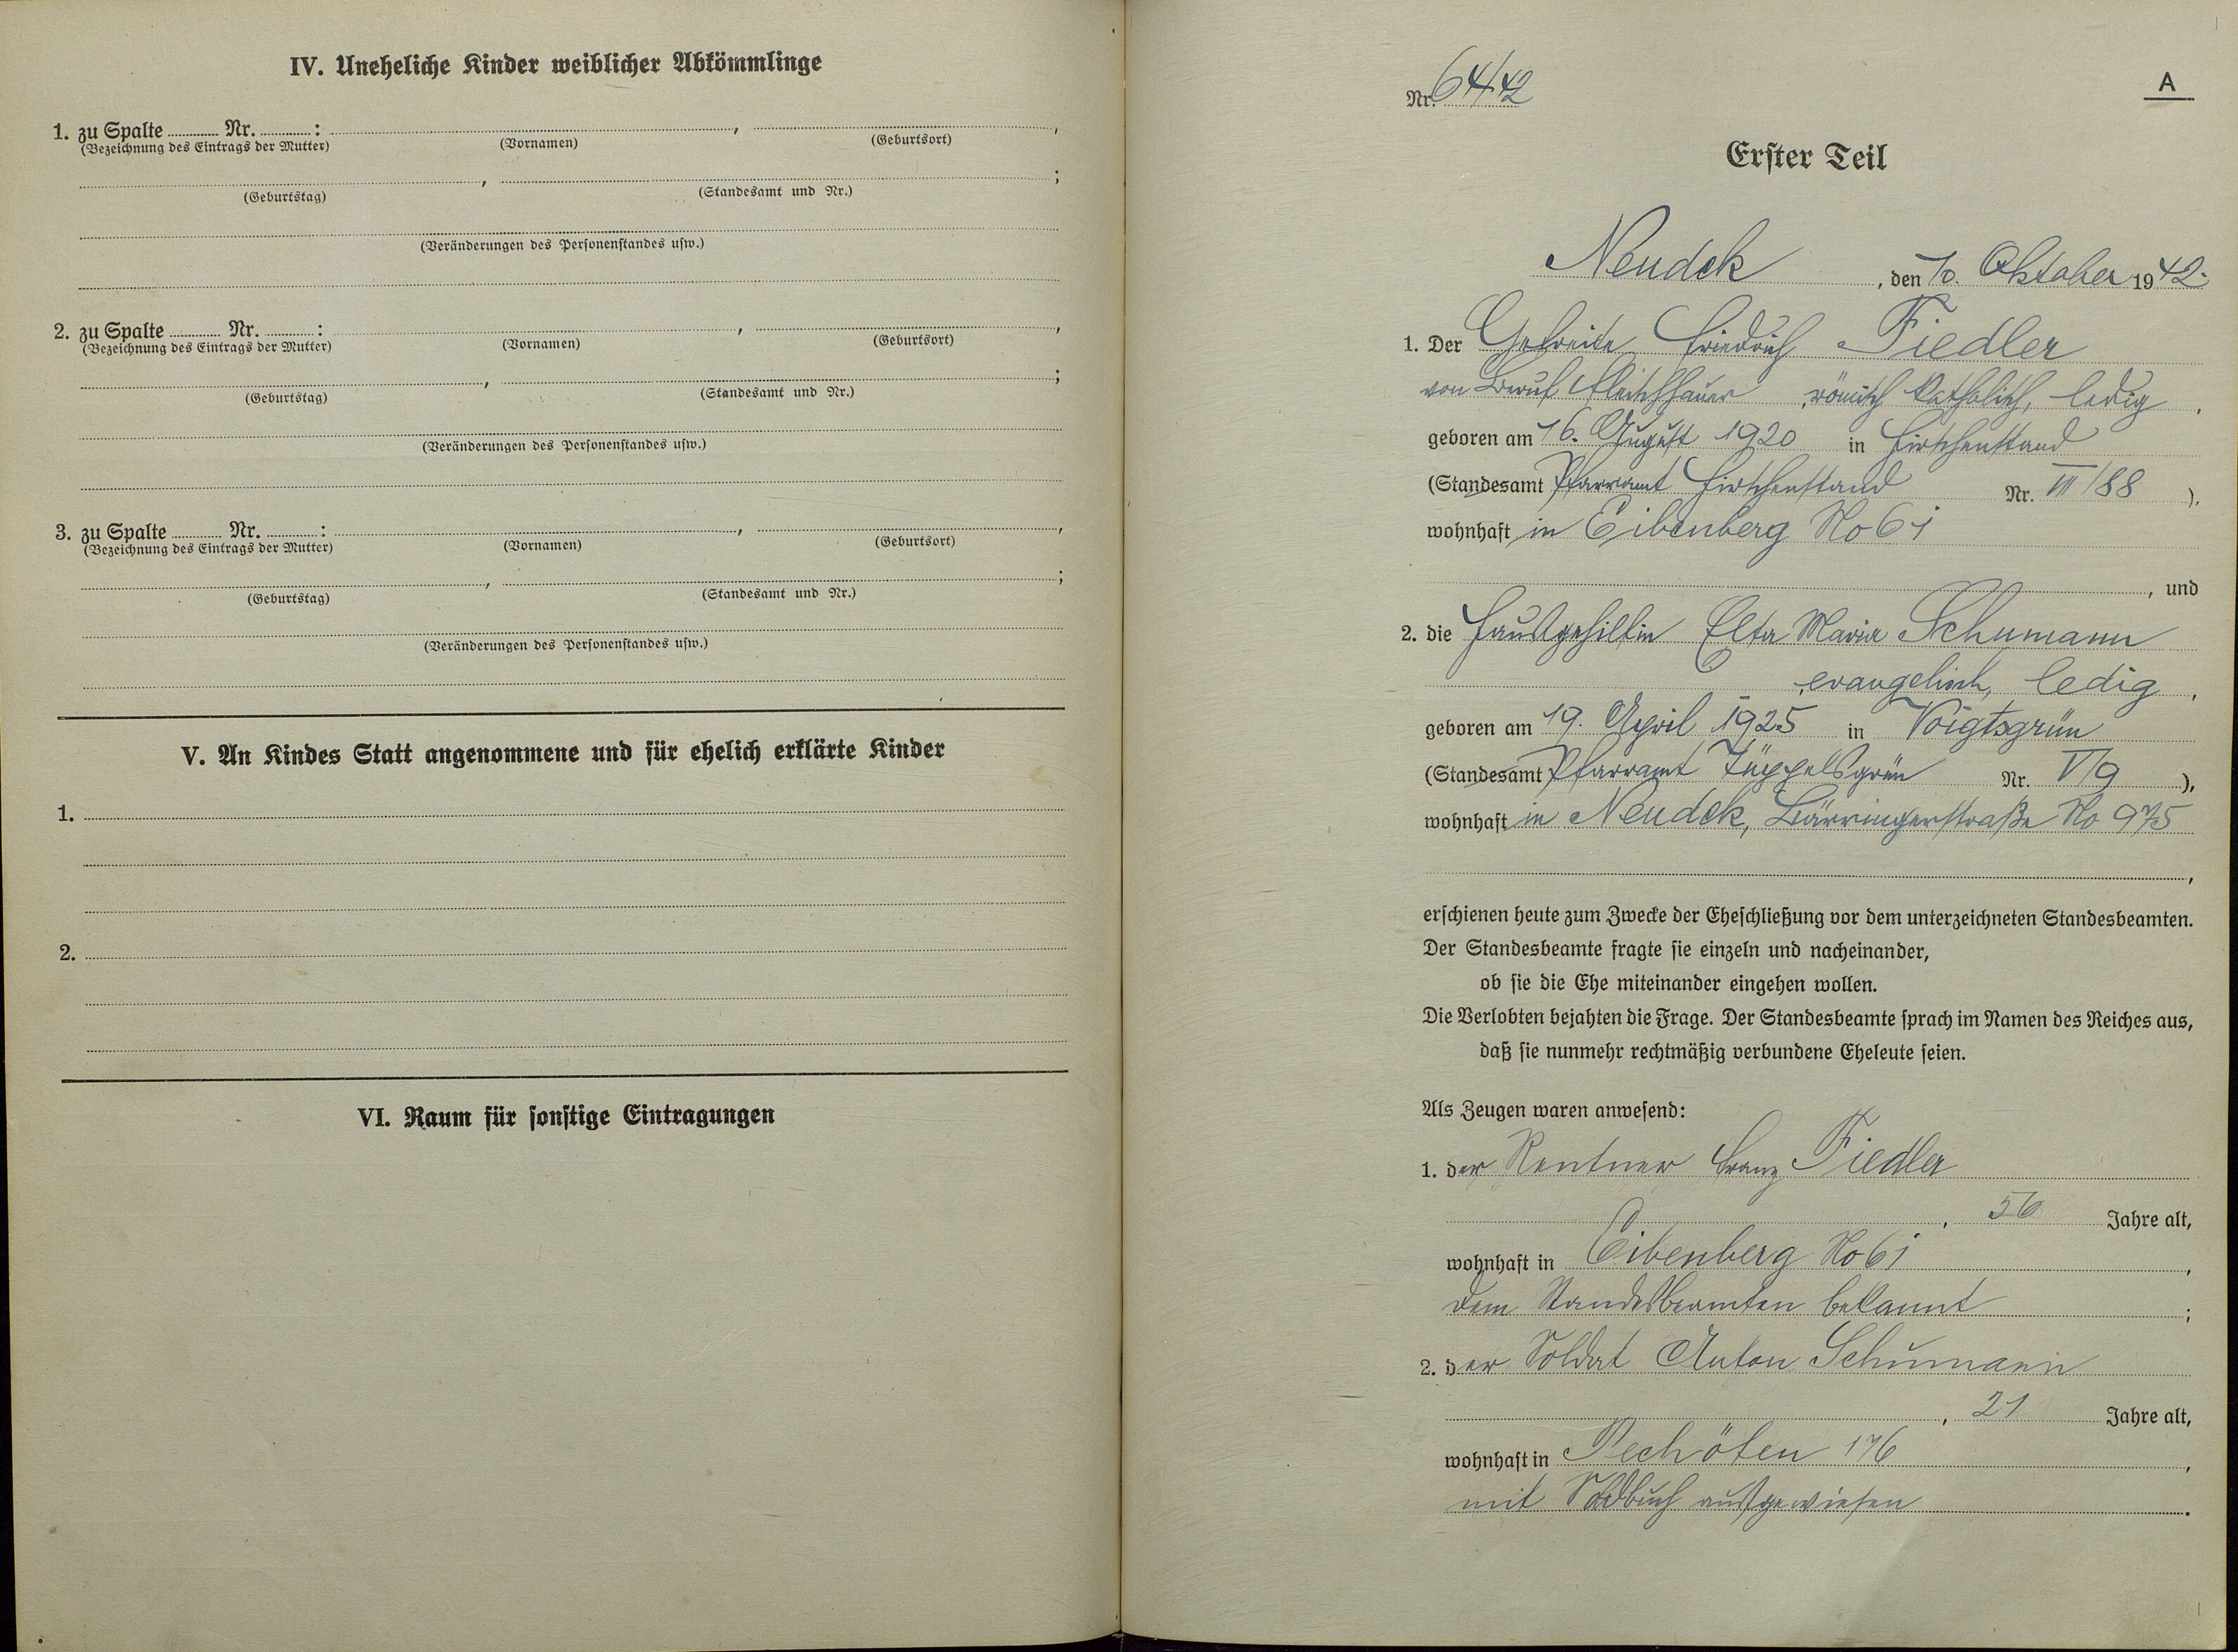 IV. Uneheliche Kinder weiblicher Abkömmlinge
1. zu Spalte ........ Nr. ........ : ........ , ........ ,
(Bezeichnung des Eintrags der Mutter) (Vornamen) (Geburtsort)
........ , ........ ;
(Geburtstag) (Standesamt und Nr.)
(Veränderungen des Personenstandes usw.)
2. zu Spalte ........ Nr. ........ : ........ , ........ ,
(Bezeichnung des Eintrags der Mutter) (Vornamen) (Geburtsort)
........ , ........ ;
(Geburtstag) (Standesamt und Nr.)
(Veränderungen des Personenstandes usw.)
3. zu Spalte ........ Nr. ........ : ........ , ........ ,
(Bezeichnung des Eintrags der Mutter) (Vornamen) (Geburtsort)
........ , ........ ;
(Geburtstag) (Standesamt und Nr.)
(Veränderungen des Personenstandes usw.)
V. An Kindes Statt angenommene und für ehelich erklärte Kinder
1.
2.
VI. Raum für sonstige Eintragungen
A
Nr. 64/42
Erster Teil
Neudek, den 10. Oktober 1942.
1. Der Gefreite Friedrich Fiedler
von Beruf Fleischhauer, römisch katholisch, ledig,
geboren am 16. August 1920 in Hirschenstand
(Standesamt Pfarramt Hirschenstand Nr. VII/88),
wohnhaft in Eibenberg No 61
, und
2. die Hausgehilfin Elsa Maria Schumann
, evangelisch, ledig,
geboren am 19. April 1925 in Voigtsgrün
(Standesamt Pfarramt Tüppelsgrün Nr. V/9),
wohnhaft in Neudek, Bärringerstraße No 975
,
erschienen heute zum Zwecke der Eheschließung vor dem unterzeichneten Standesbeamten.
Der Standesbeamte fragte sie einzeln und nacheinander,
ob sie die Ehe miteinander eingehen wollen.
Die Verlobten bejahten die Frage. Der Standesbeamte sprach im Namen des Reiches aus,
daß sie nunmehr rechtmäßig verbundene Eheleute seien.
Als Zeugen waren anwesend:
1. der Rentner Franz Fiedler
, 56 Jahre alt,
wohnhaft in Eibenberg No 61,
dem Standesbeamten bekannt;
2. der Soldat Anton Schumann
, 21 Jahre alt,
wohnhaft in Pechöfen 176,
mit Soldbuch ausgewiesen.